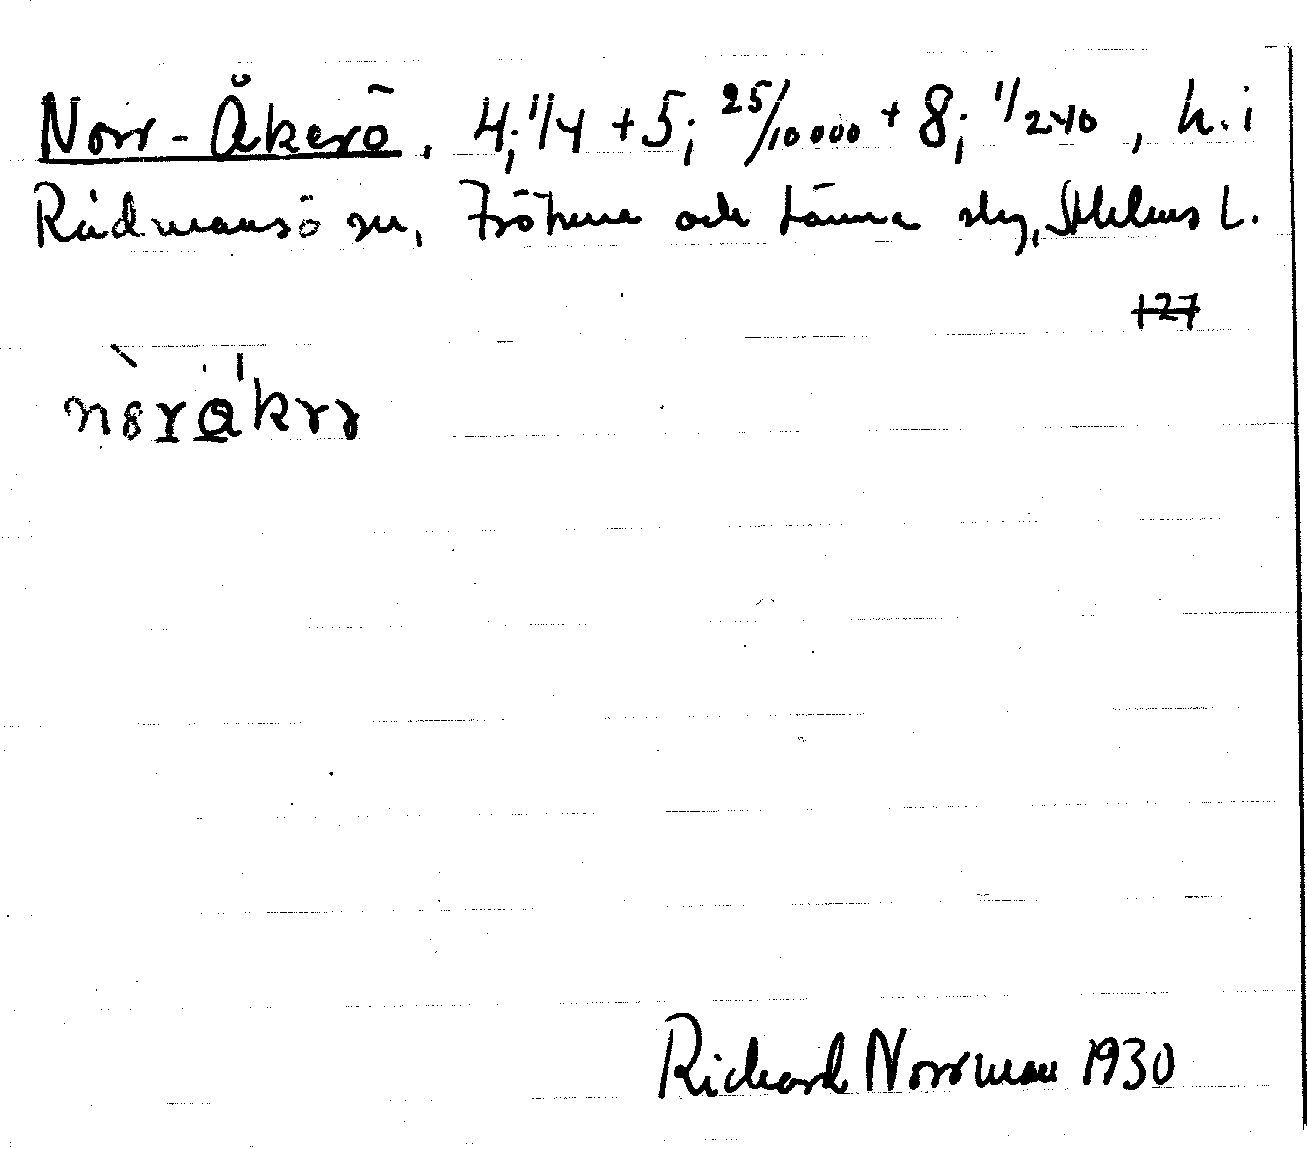 Norr-Åkerö, 4; 1/4 + 5; 25/10000 + 8; 1/240, h. i
Rådmansö sn, Frötuna och Länna skg, Sthlms L.
127
Richard Norrman 1930